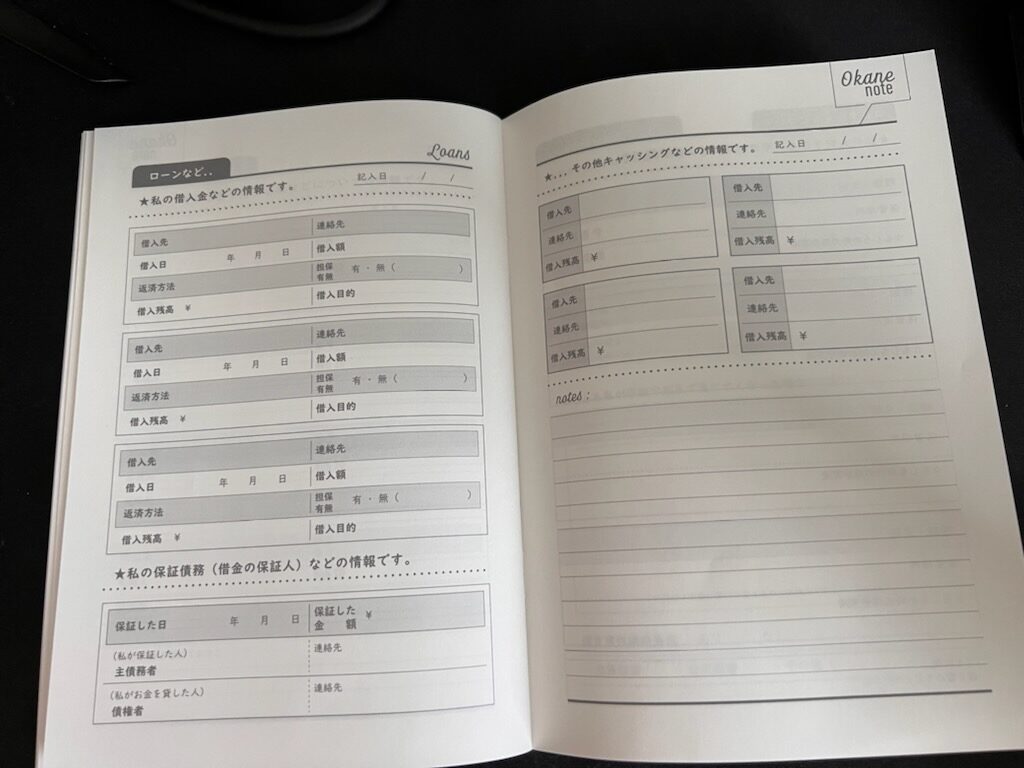 Loans
ローンなど..
★私の借入金などの情報です。 記入日 / /
借入先 連絡先
借入日 年 月 日 借入額
返済方法 担保有無 有・無( )
借入残高 ¥ 借入目的
借入先 連絡先
借入日 年 月 日 借入額
返済方法 担保有無 有・無( )
借入残高 ¥ 借入目的
借入先 連絡先
借入日 年 月 日 借入額
返済方法 担保有無 有・無( )
借入残高 ¥ 借入目的
★私の保証債務(借金の保証人)などの情報です。
保証した日 年 月 日 保証した金額 ¥
(私が保証した人)
主債務者 連絡先
(私がお金を貸した人)
債権者 連絡先
Okane
note
★... その他キャッシングなどの情報です。 記入日 / /
借入先
連絡先
借入残高 ¥
借入先
連絡先
借入残高 ¥
借入先
連絡先
借入残高 ¥
借入先
連絡先
借入残高 ¥
notes :